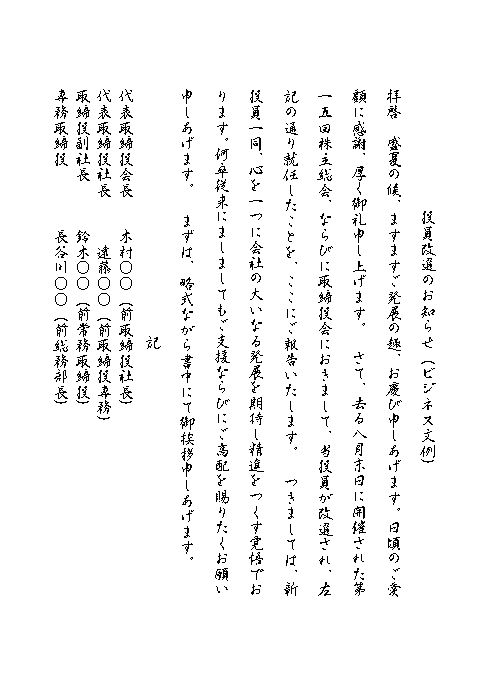 役員改選のお知らせ（ビジネス文例）
拝啓　盛夏の候、ますますご発展の趣、お慶び申しあげます。日頃のご愛
顧に感謝、厚く御礼申し上げます。　さて、去る八月末日に開催された第
一五回株主総会、ならびに取締役会におきまして、当役員が改選され、左
記の通り就任したことを、ここにご報告いたします。　つきましては、新
役員一同、心を一つに会社の大いなる発展を期待し精進をつくす覚悟でお
ります。何卒従来にましましてもご支援ならびにご高配を賜りたくお願い
申しあげます。　まずは、略式ながら書中にて御挨拶申しあげます。
記
代表取締役会長　木村〇〇（前取締役社長）
代表取締役社長　遠藤〇〇（前取締役専務）
取締役副社長　鈴木〇〇（前常務取締役）
専務取締役　長谷川〇〇（前総務部長）